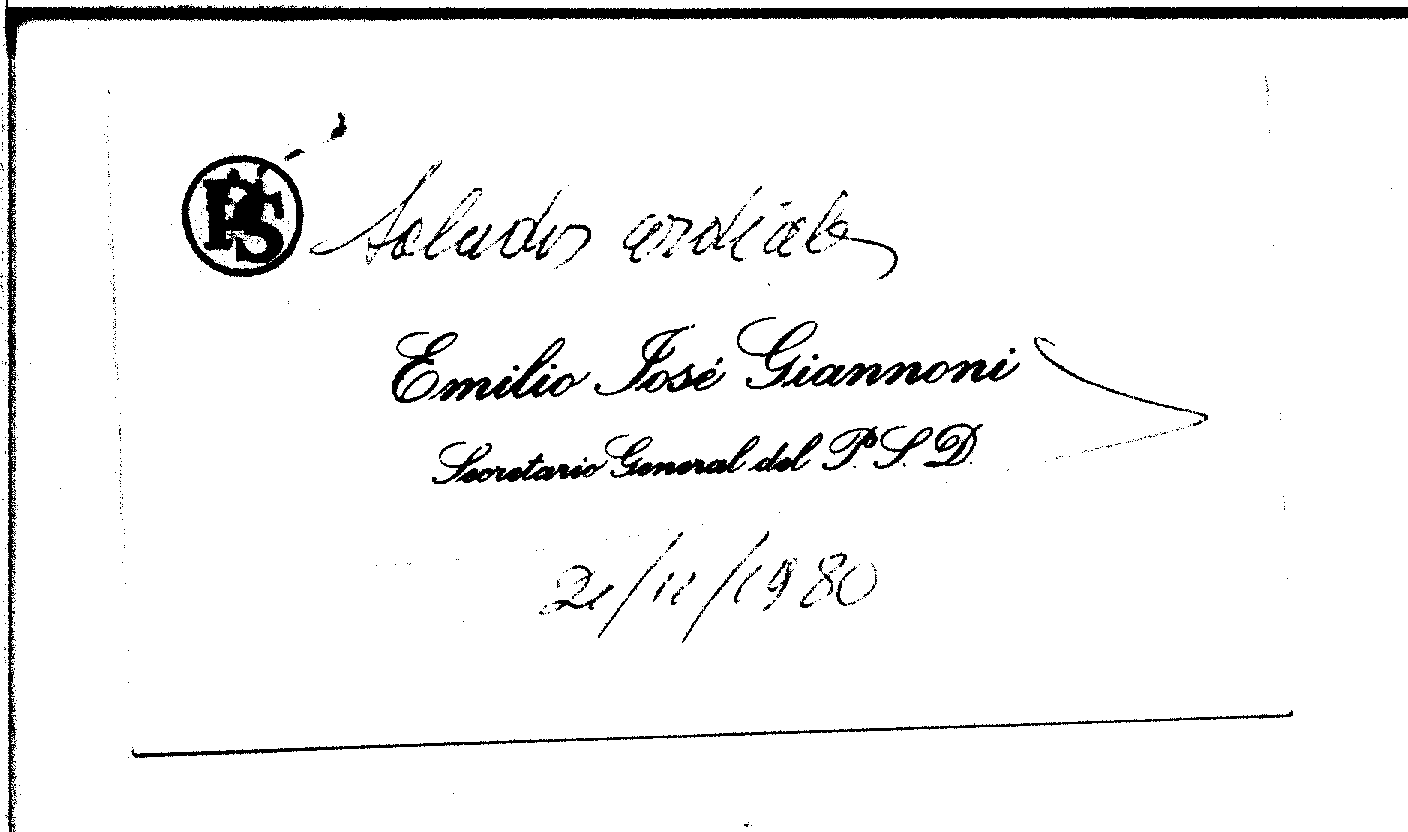 PS
Saludos cordiales
Emilio José Giannoni
Secretario General del P.S.D.
/1980